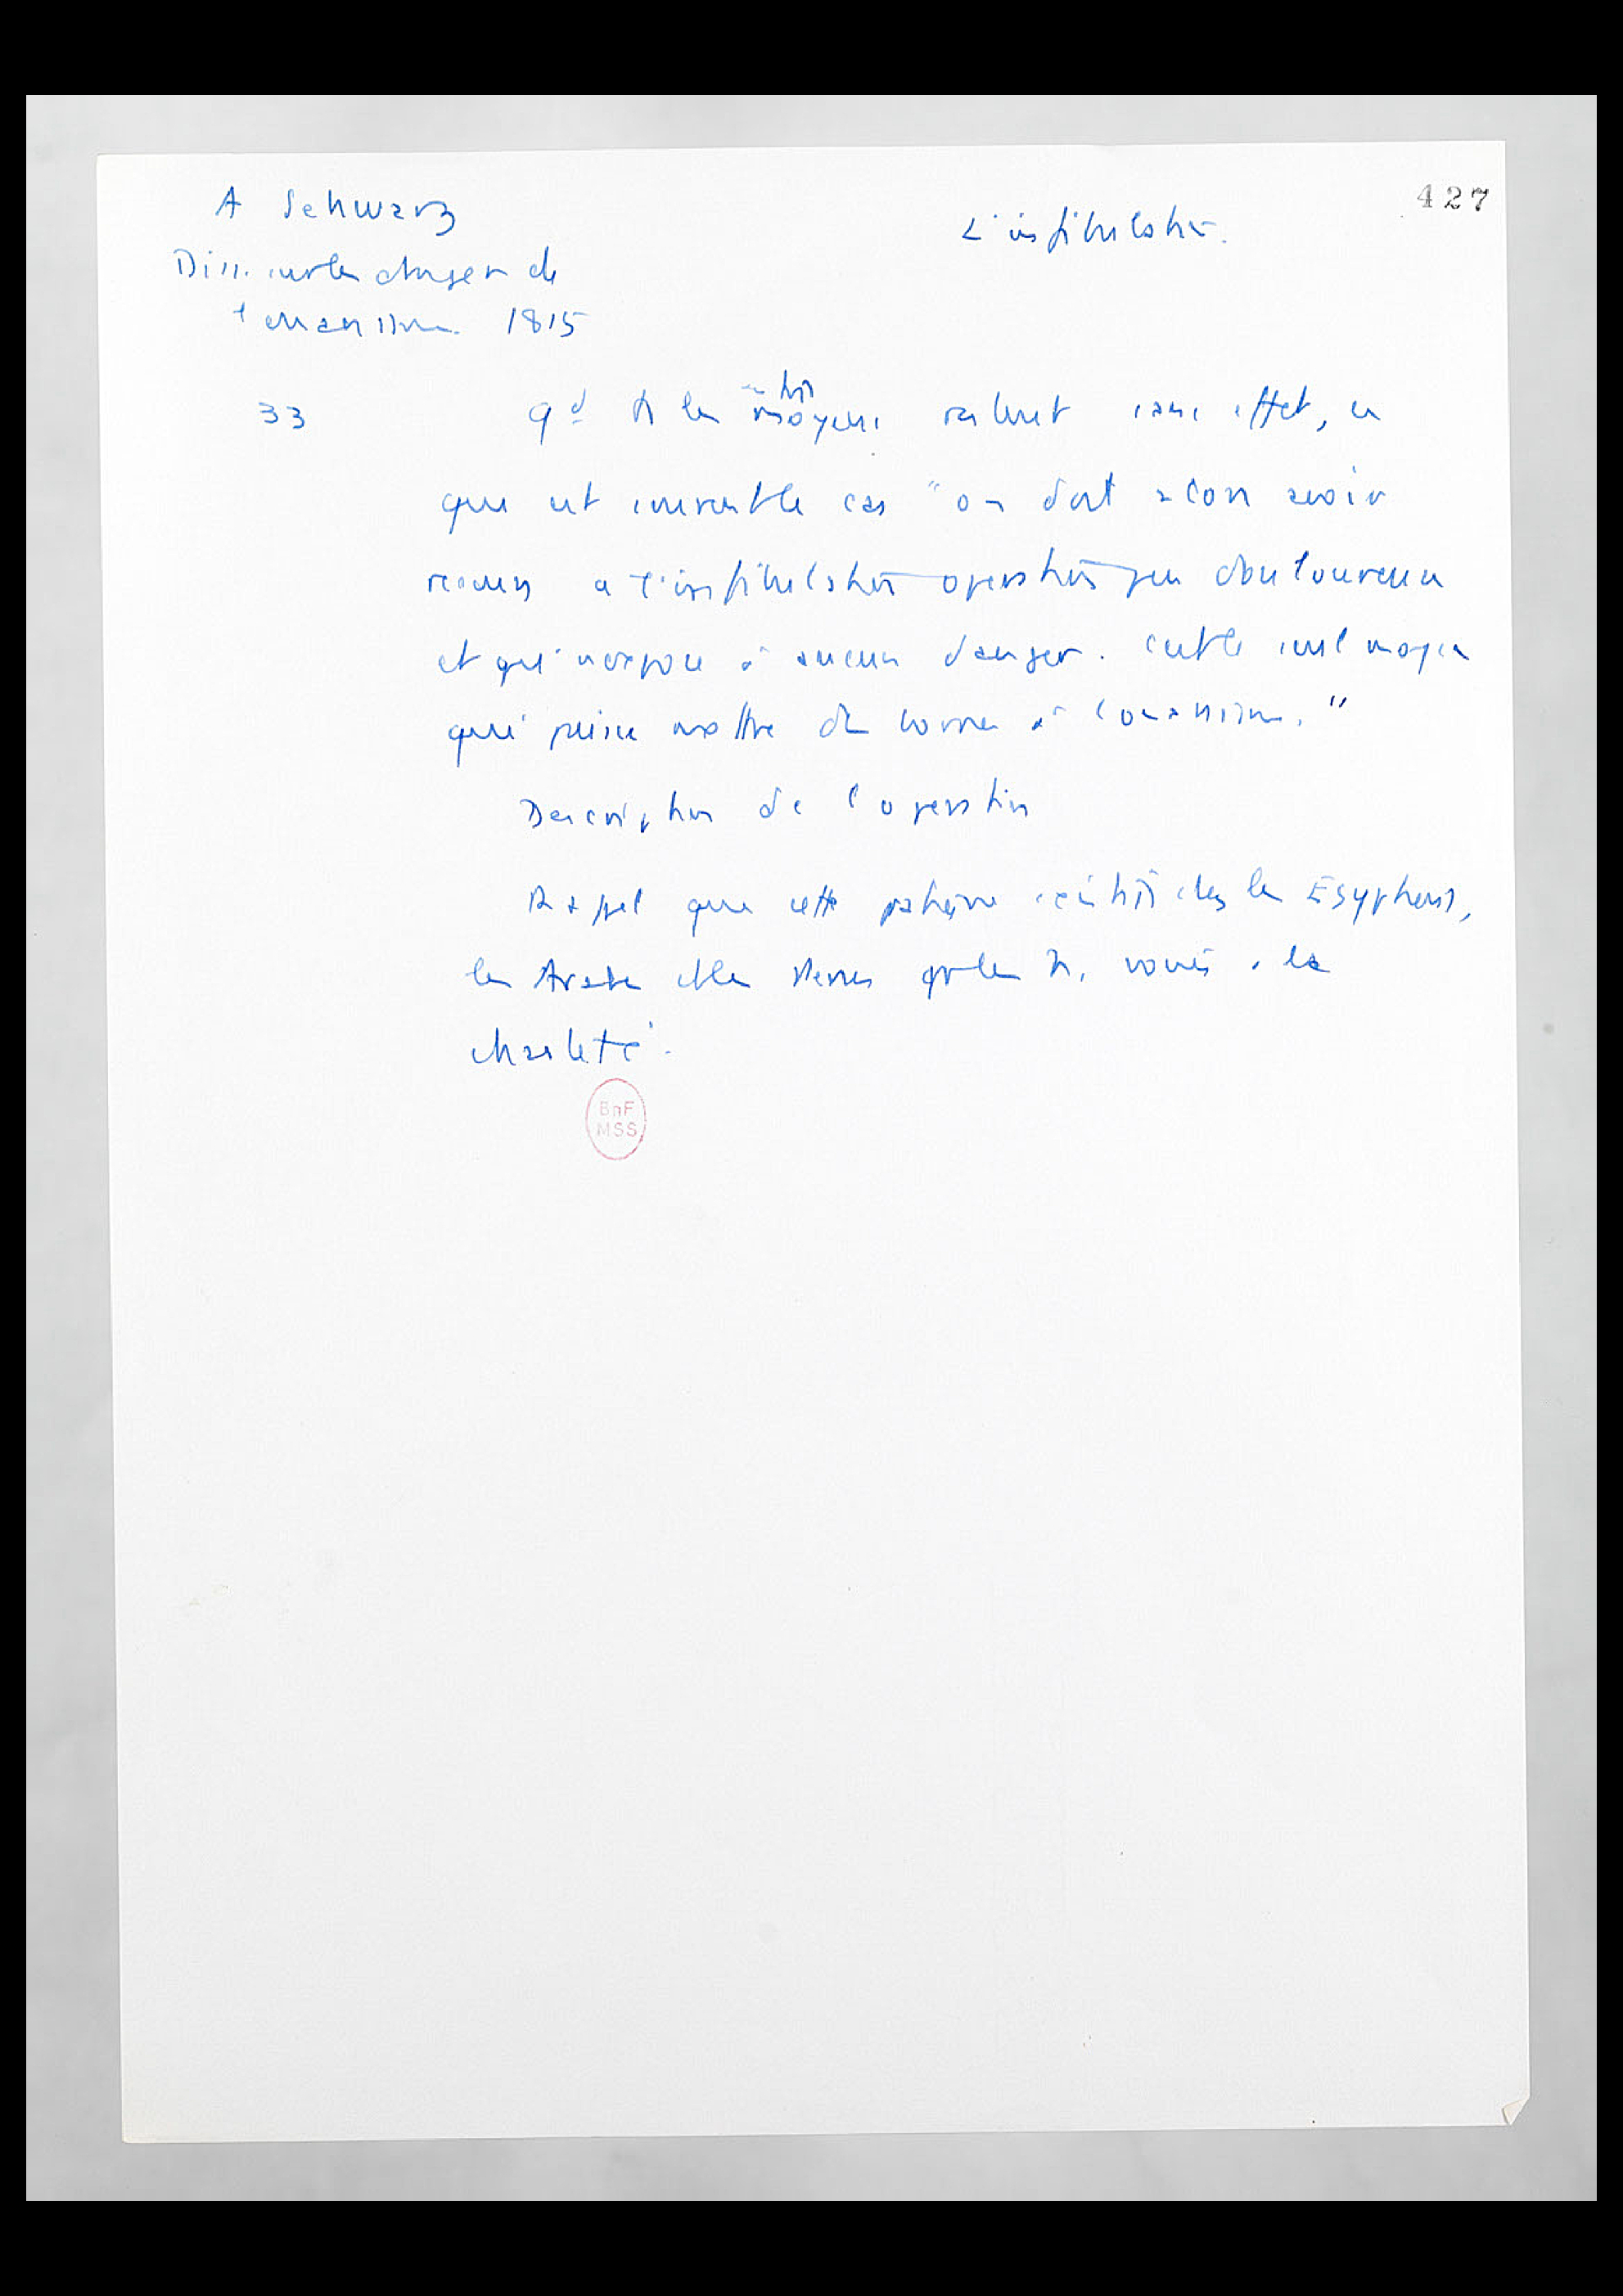 427
A Schwarz
L'infibulation.
Diss. sur les dangers de
l'onanisme 1815
33
qd ts les moyens restent sans effet, ce
que est souvent le cas "on doit alors avoir
recours à l'infibulation opération peu douloureuse
et qui n'expose à aucun danger. C'est le seul moyen
qui puisse mettre des bornes à l'onanisme."
Description de l'opération
Rappel que cette pratique existait chez les Egyptiens,
les Arabes et les voués à la
chasteté.
BnF
MSS